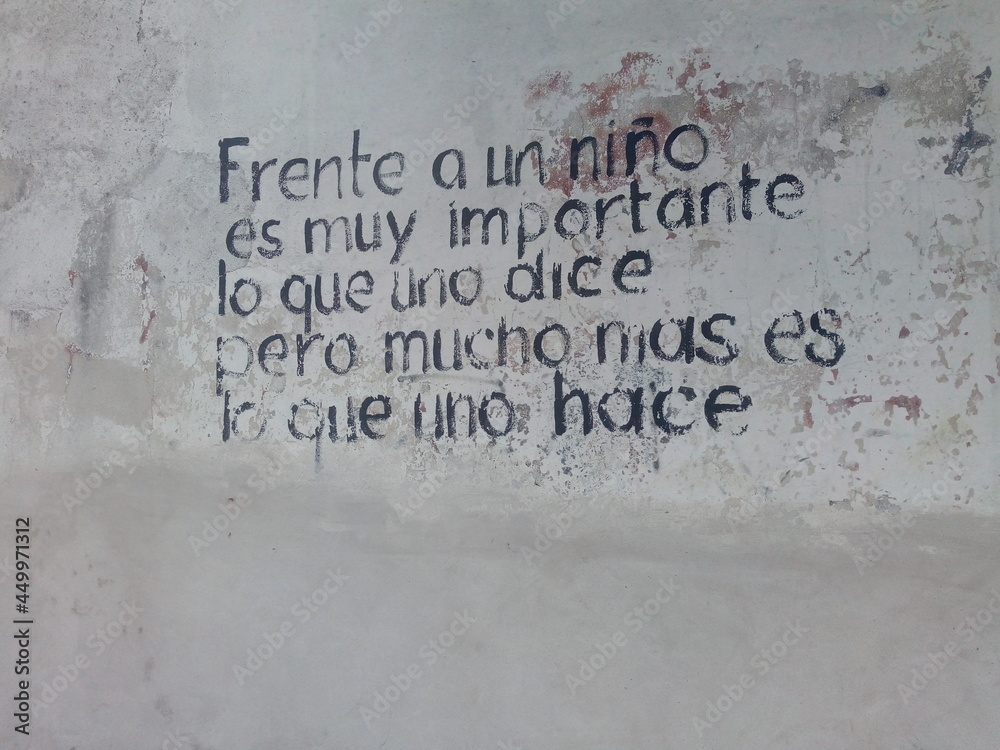 Frente a un niño
es muy importante
lo que uno dice
pero mucho mas es
lo que uno hace
Adobe Stock | #449971312